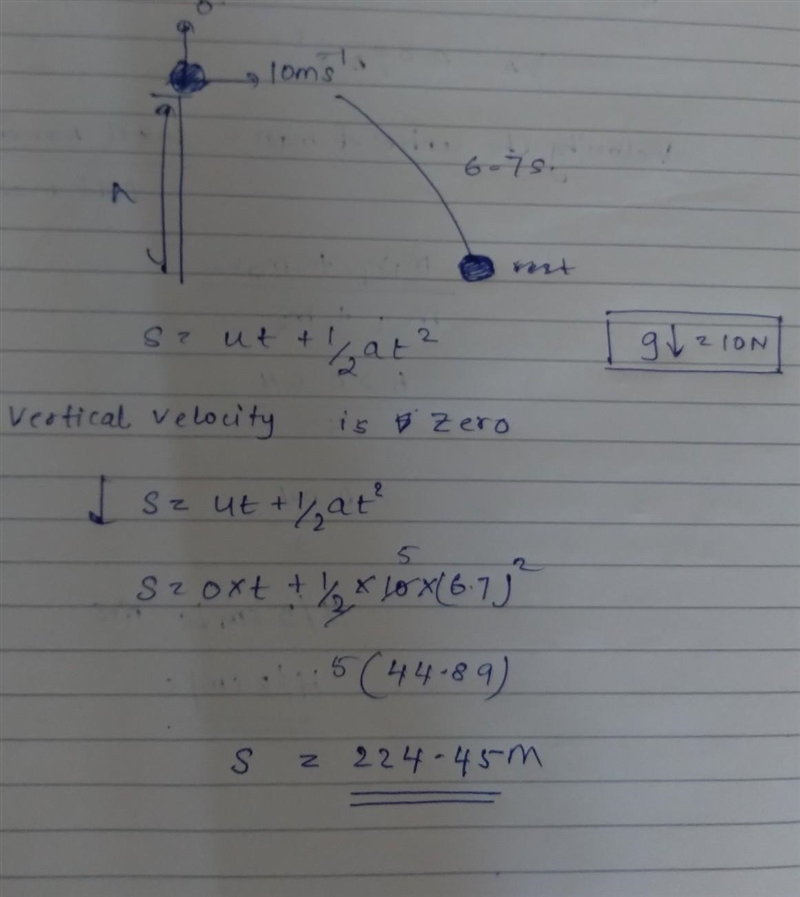 0
10ms⁻¹
6.7s
h
rest
s = ut + 1/2 at²
g↓ = 10N
Vertical velocity is zero
↓ s = ut + 1/2 at²
5
s = 0×t + 1/2 × 10 × (6.7)²
5(44.89)
s = 224.45m